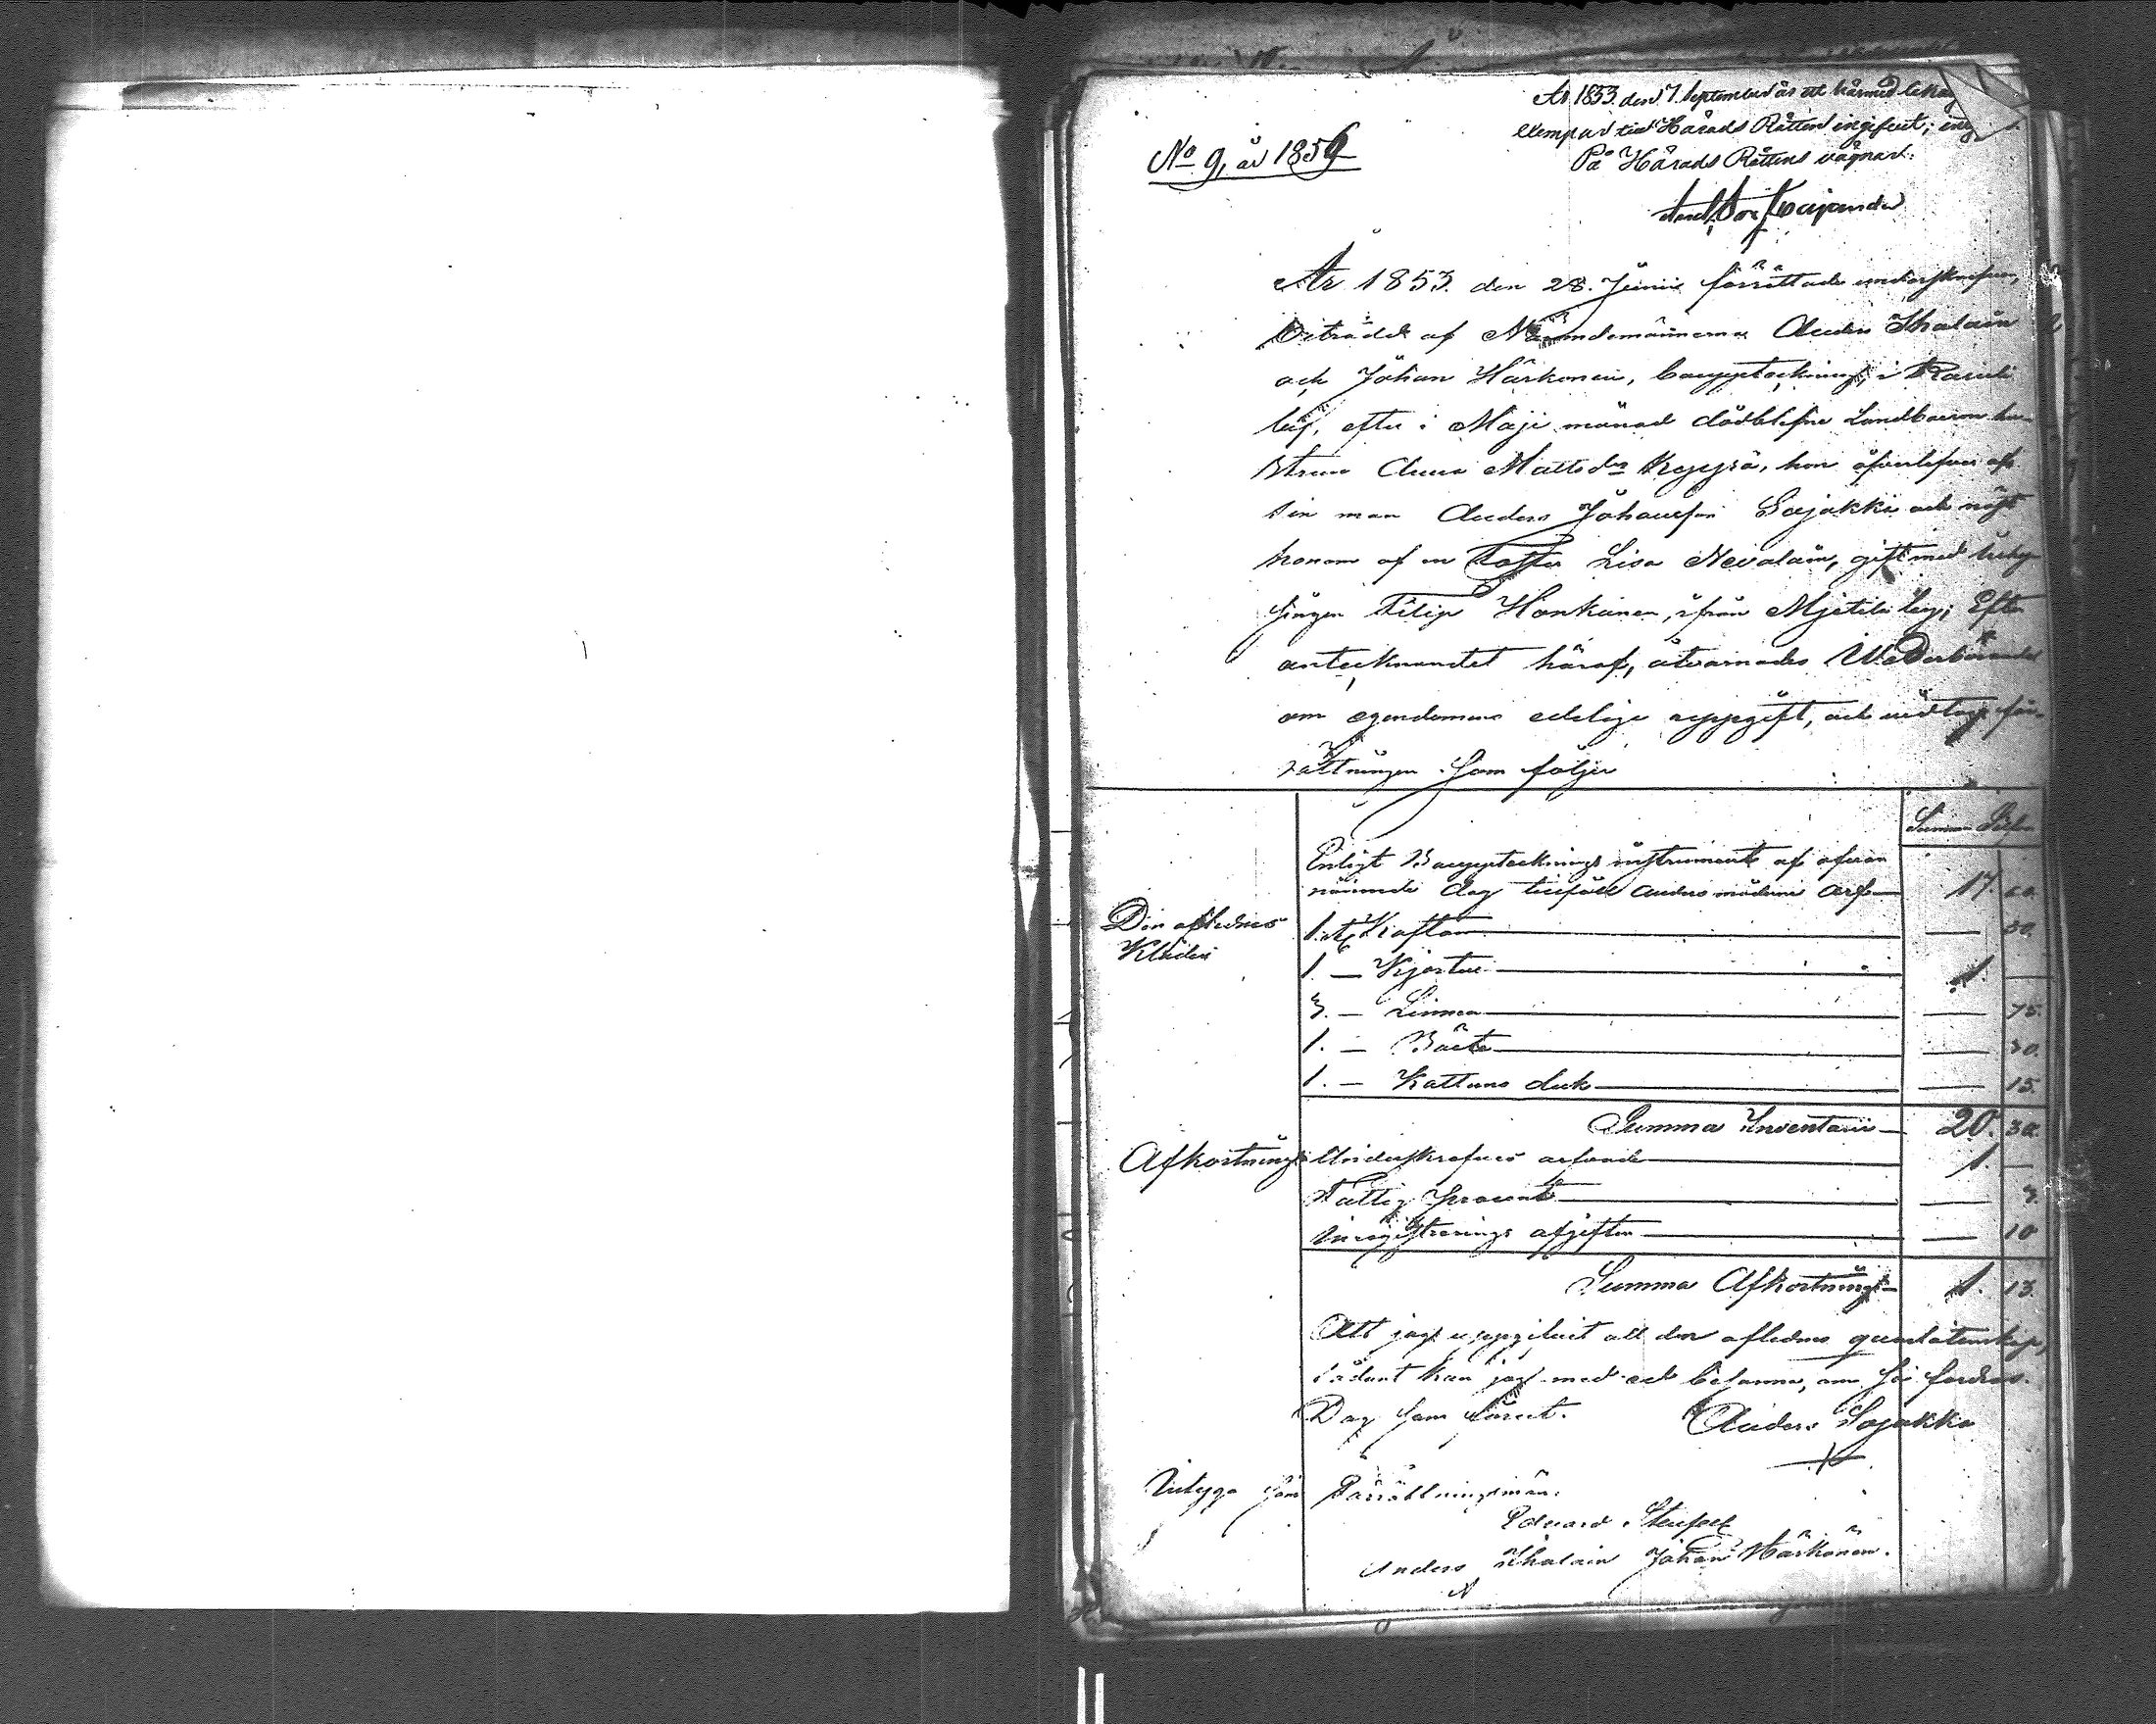 År 1853. den 7. September är ett härmed lika
exemplar till Härads Rätten ingifvit;
På Härads Rättens vägnar.
Cajander
No 9, år 1856
År 1853. den 28. Junii förrättade undertecknad,
biträdd af Nämndemännerna Anders Ihalain
och Johan Härkonen, bouppteckning, i
by, efter i Maji månad dödblefne Landbonen hu-
struns Anna Matts dr Reppä, hon öfverlefves af
sin man Anders Johansson Sojakka och näst
honom af en Lisa Nevalain, gift med
Filip Honkanen, ifrån by; Efter
antecknandet häraf, åtvarnades Wederbörande
om egendomens edelige uppgift, och vidtogs för-
rättningen som följer
Summa
Enligt Bouppteknings instrument af ofvan
nämnde dag tillföll arf 17. 60.
Den aflednes 1. st. Kaftan — 30.
Kläder
1. — Kjortel 1. —
3. — Linnen — 75.
1. — Bälte — 50.
1. — Kattuns duk — 15.
Summa Inventarii 20. 30.
Afkortning Underskrefnes arfvode 1. —
Fattig procent — 3.
Inregistrerings afgiften — 10
Summa Afkortning 1. 13.
Att jag uppgifvit all den aflednes qvarlåtenskap,
sådant kan jag med ed besanna, om så fordras.
Dag som förut. Anders Sojakka
Intyga som Förrättningsmän.
Edvard
Anders Ihalain Johan Härkönen.